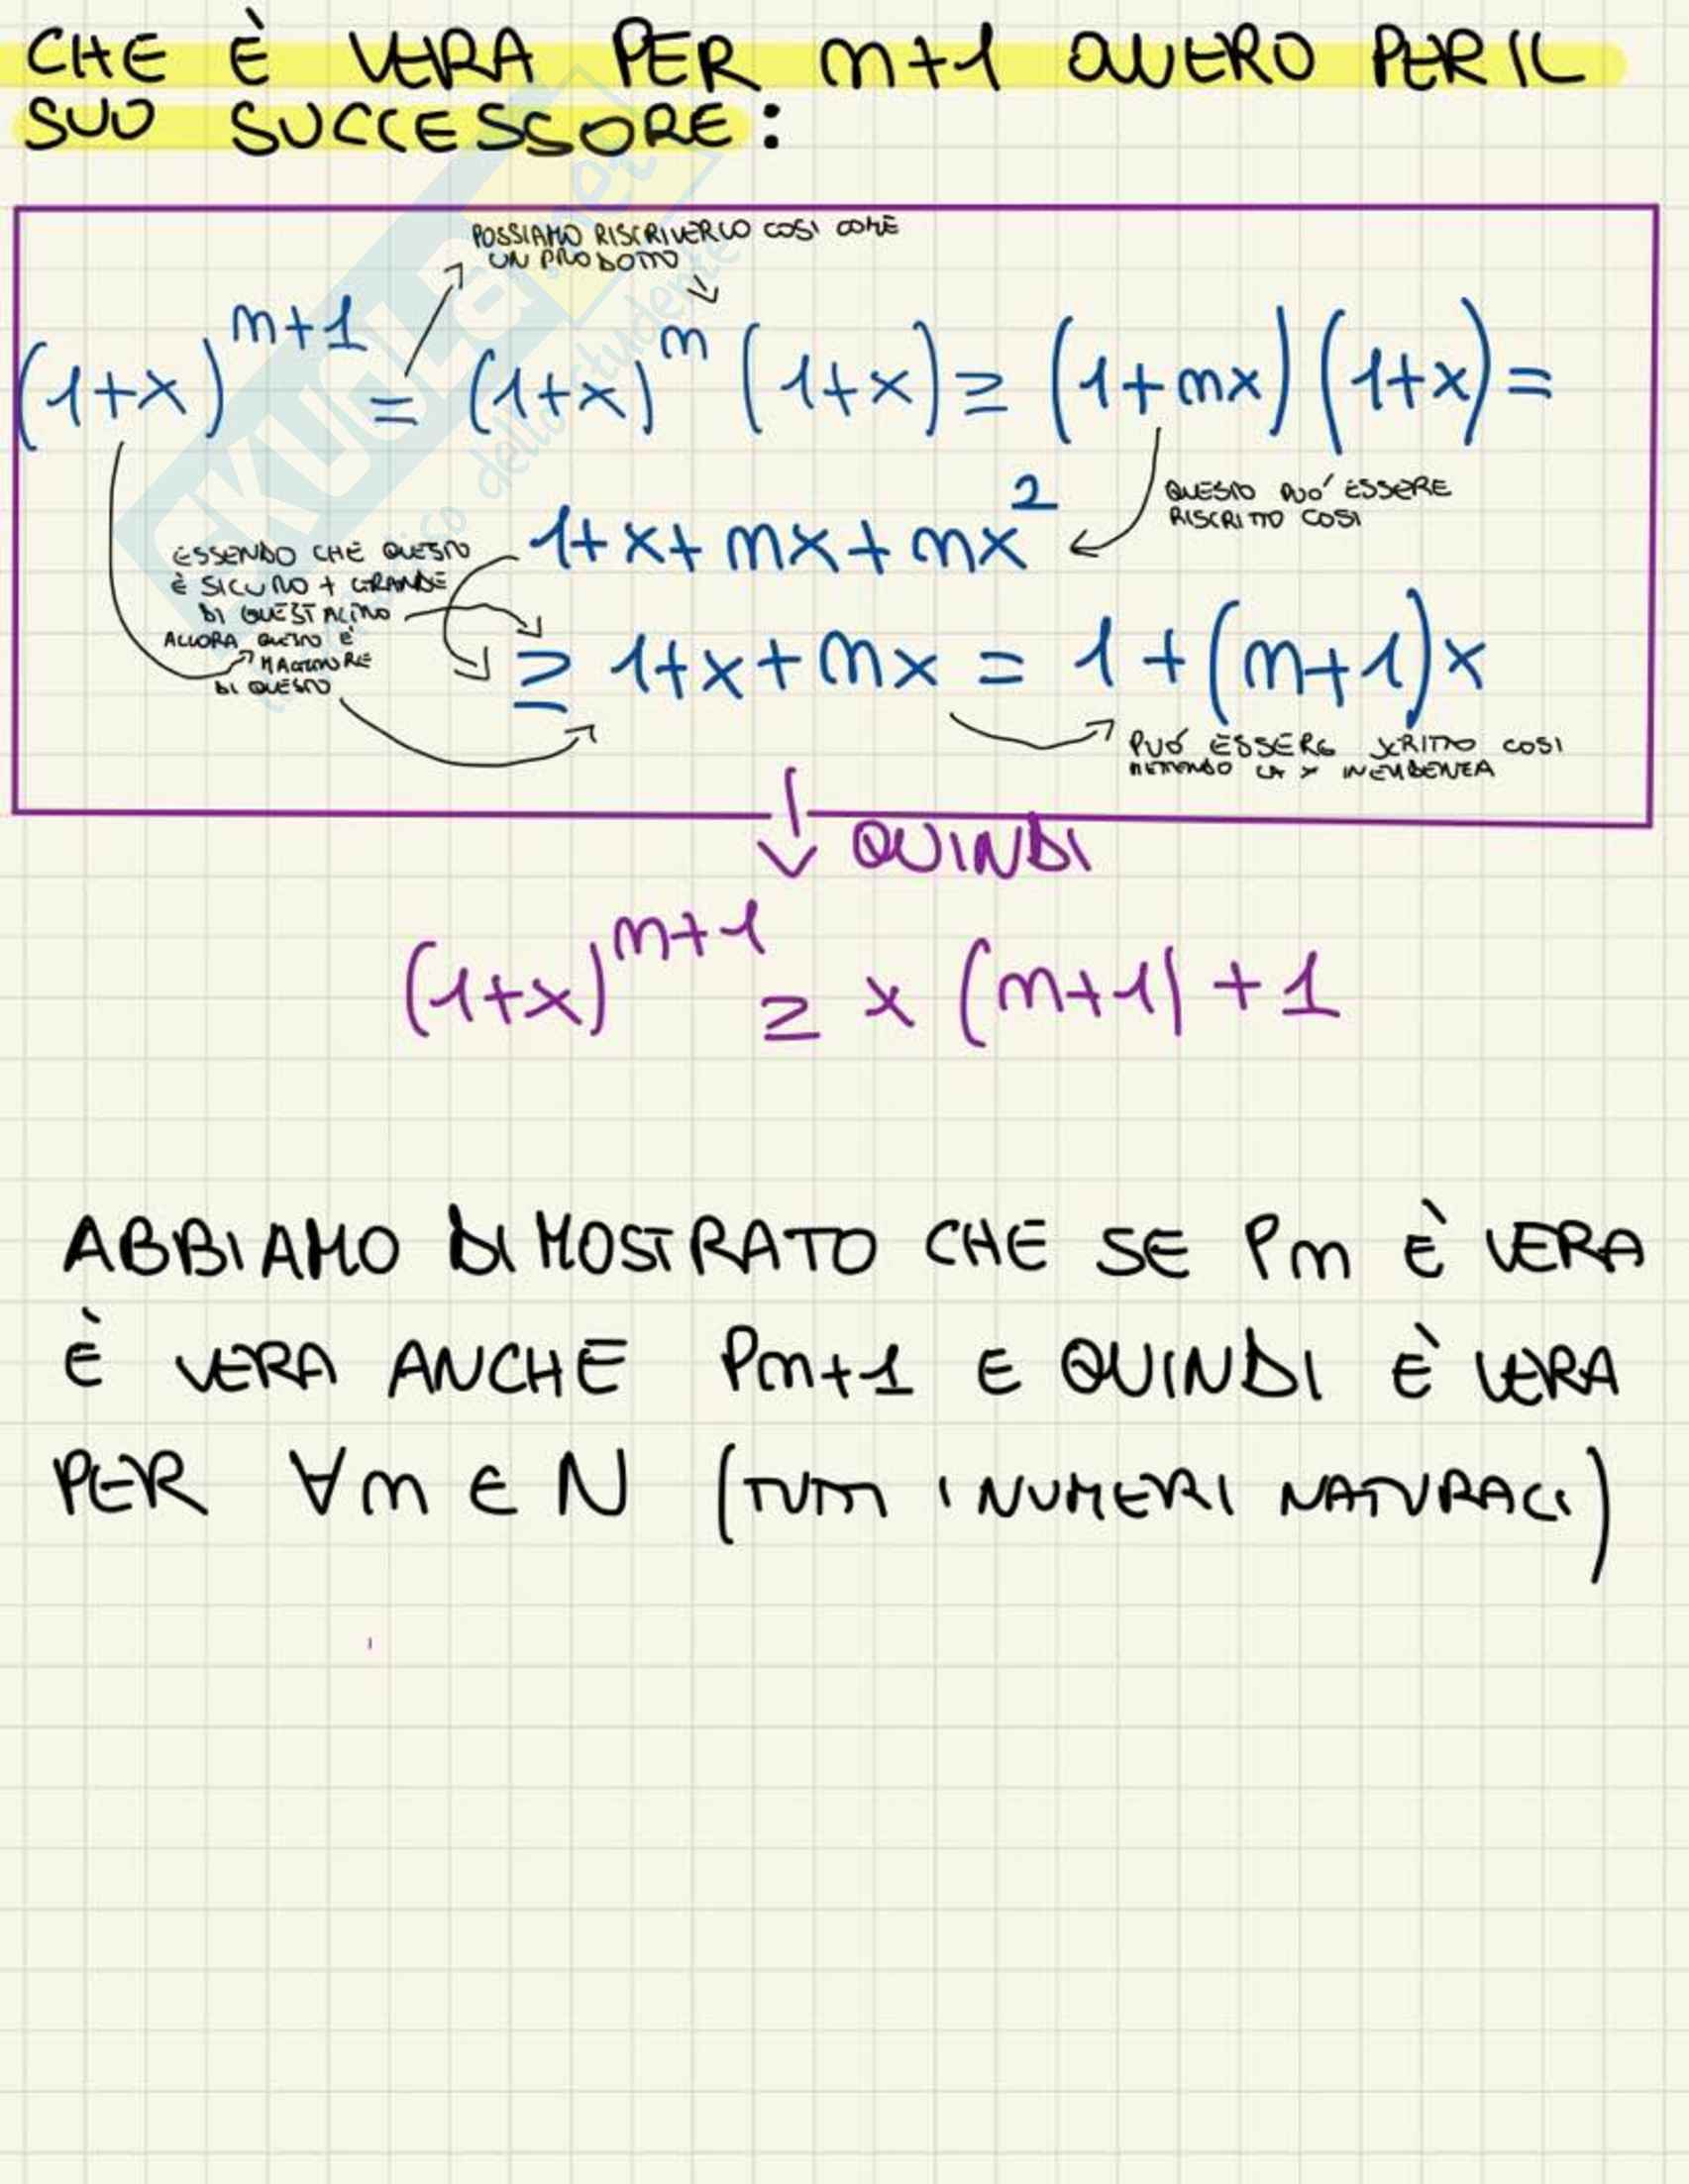 CHE È VERA PER m+1 OVVERO PER IL
SUO SUCCESSORE:
POSSIAMO RISCRIVERLO COSI COME
UN PRODOTTO
(1+x)^{m+1} = (1+x)^m (1+x) ≥ (1+mx)(1+x) =
QUESTO PUÓ ESSERE
RISCRITTO COSI
1+x+mx+mx²
ESSENDO CHE QUESTO
È SICURO + GRANDE
DI QUEST ALTRO
ALLORA QUESTO È
MAGGIORE
DI QUESTO
≥ 1+x+mx = 1+(m+1)x
PUÓ ESSERE SCRITTO COSI
METTENDO LA x
QUINDI
(1+x)^{m+1} ≥ x(m+1)+1
ABBIAMO DIMOSTRATO CHE SE Pm È VERA
È VERA ANCHE Pm+1 E QUINDI È VERA
PER ∀m ∈ N (TUTTI I NUMERI NATURALI)
SKUOLA.net
dello studente